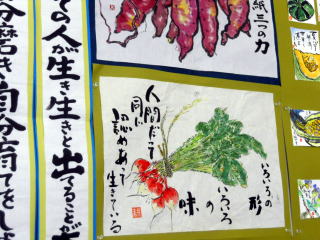 ての人が生き生きと出てることが
分磨き自分育てをしま
紙三つの力
いろいろの形
いろいろ
の
味
人間だって
同じ
認めあって
生きている